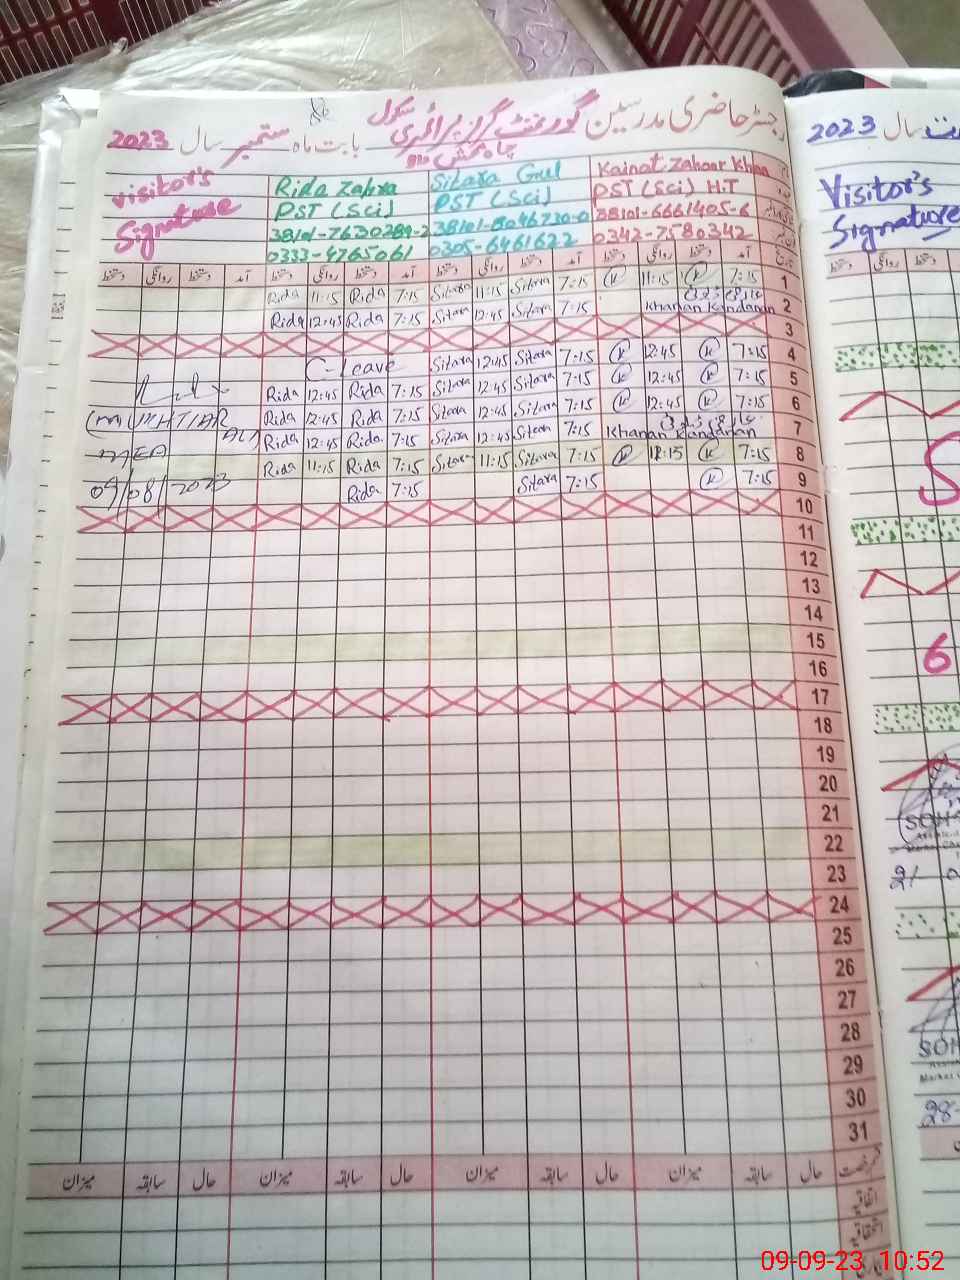 رجسٹر حاضری مدرسین گورنمنٹ گرلز پرائمری سکول بابت ماہ ستمبر سال 2023
چاہ بخش
visitor's Signature
Rida Zahra
PST (Sci)
38101-7630289-2
0333-4765061
Sitara Gul
PST (Sci)
38101-8046730-0
0305-6461622
Kainat Zahoor Khan
PST (Sci) H.T
38101-6661405-6
0342-7580342
دستخط روانگی دستخط آمد دستخط روانگی دستخط آمد دستخط روانگی دستخط آمد دستخط روانگی دستخط آمد تاریخ
Rida 11:15 Rida 7:15 Sitara 11:15 Sitara 7:15 K 11:15 K 7:15 1
Rida 12:45 Rida 7:15 Sitara 12:45 Sitara 7:15 Khanan Kandanan 2
3
C-Leave Sitara 12:45 Sitara 7:15 K 12:45 K 7:15 4
Rida 12:45 Rida 7:15 Sitara 12:45 Sitara 7:15 K 12:45 K 7:15 5
(MUKHTIAR ALI) Rida 12:45 Rida 7:15 Sitara 12:45 Sitara 7:15 K 12:45 K 7:15 6
MEA Rida 12:45 Rida 7:15 Sitara 12:45 Sitara 7:15 Khanan Kandanan 7
Rida 11:15 Rida 7:15 Sitara 11:15 Sitara 7:15 K 7:15 8
09/08/2023 Rida 7:15 Sitara 7:15 K 7:15 9
10
11
12
13
14
15
16
17
18
19
20
21
22
23
24
25
26
27
28
29
30
31
میزان سابقہ حال میزان سابقہ حال میزان سابقہ حال میزان سابقہ حال قسم رخصت
اتفاقیہ
استحقاقیہ
2023 سال
Visitor's
Signature
دستخط روانگی دستخط
S
6
SOH
21
SOH
28-
09-09-23 10:52